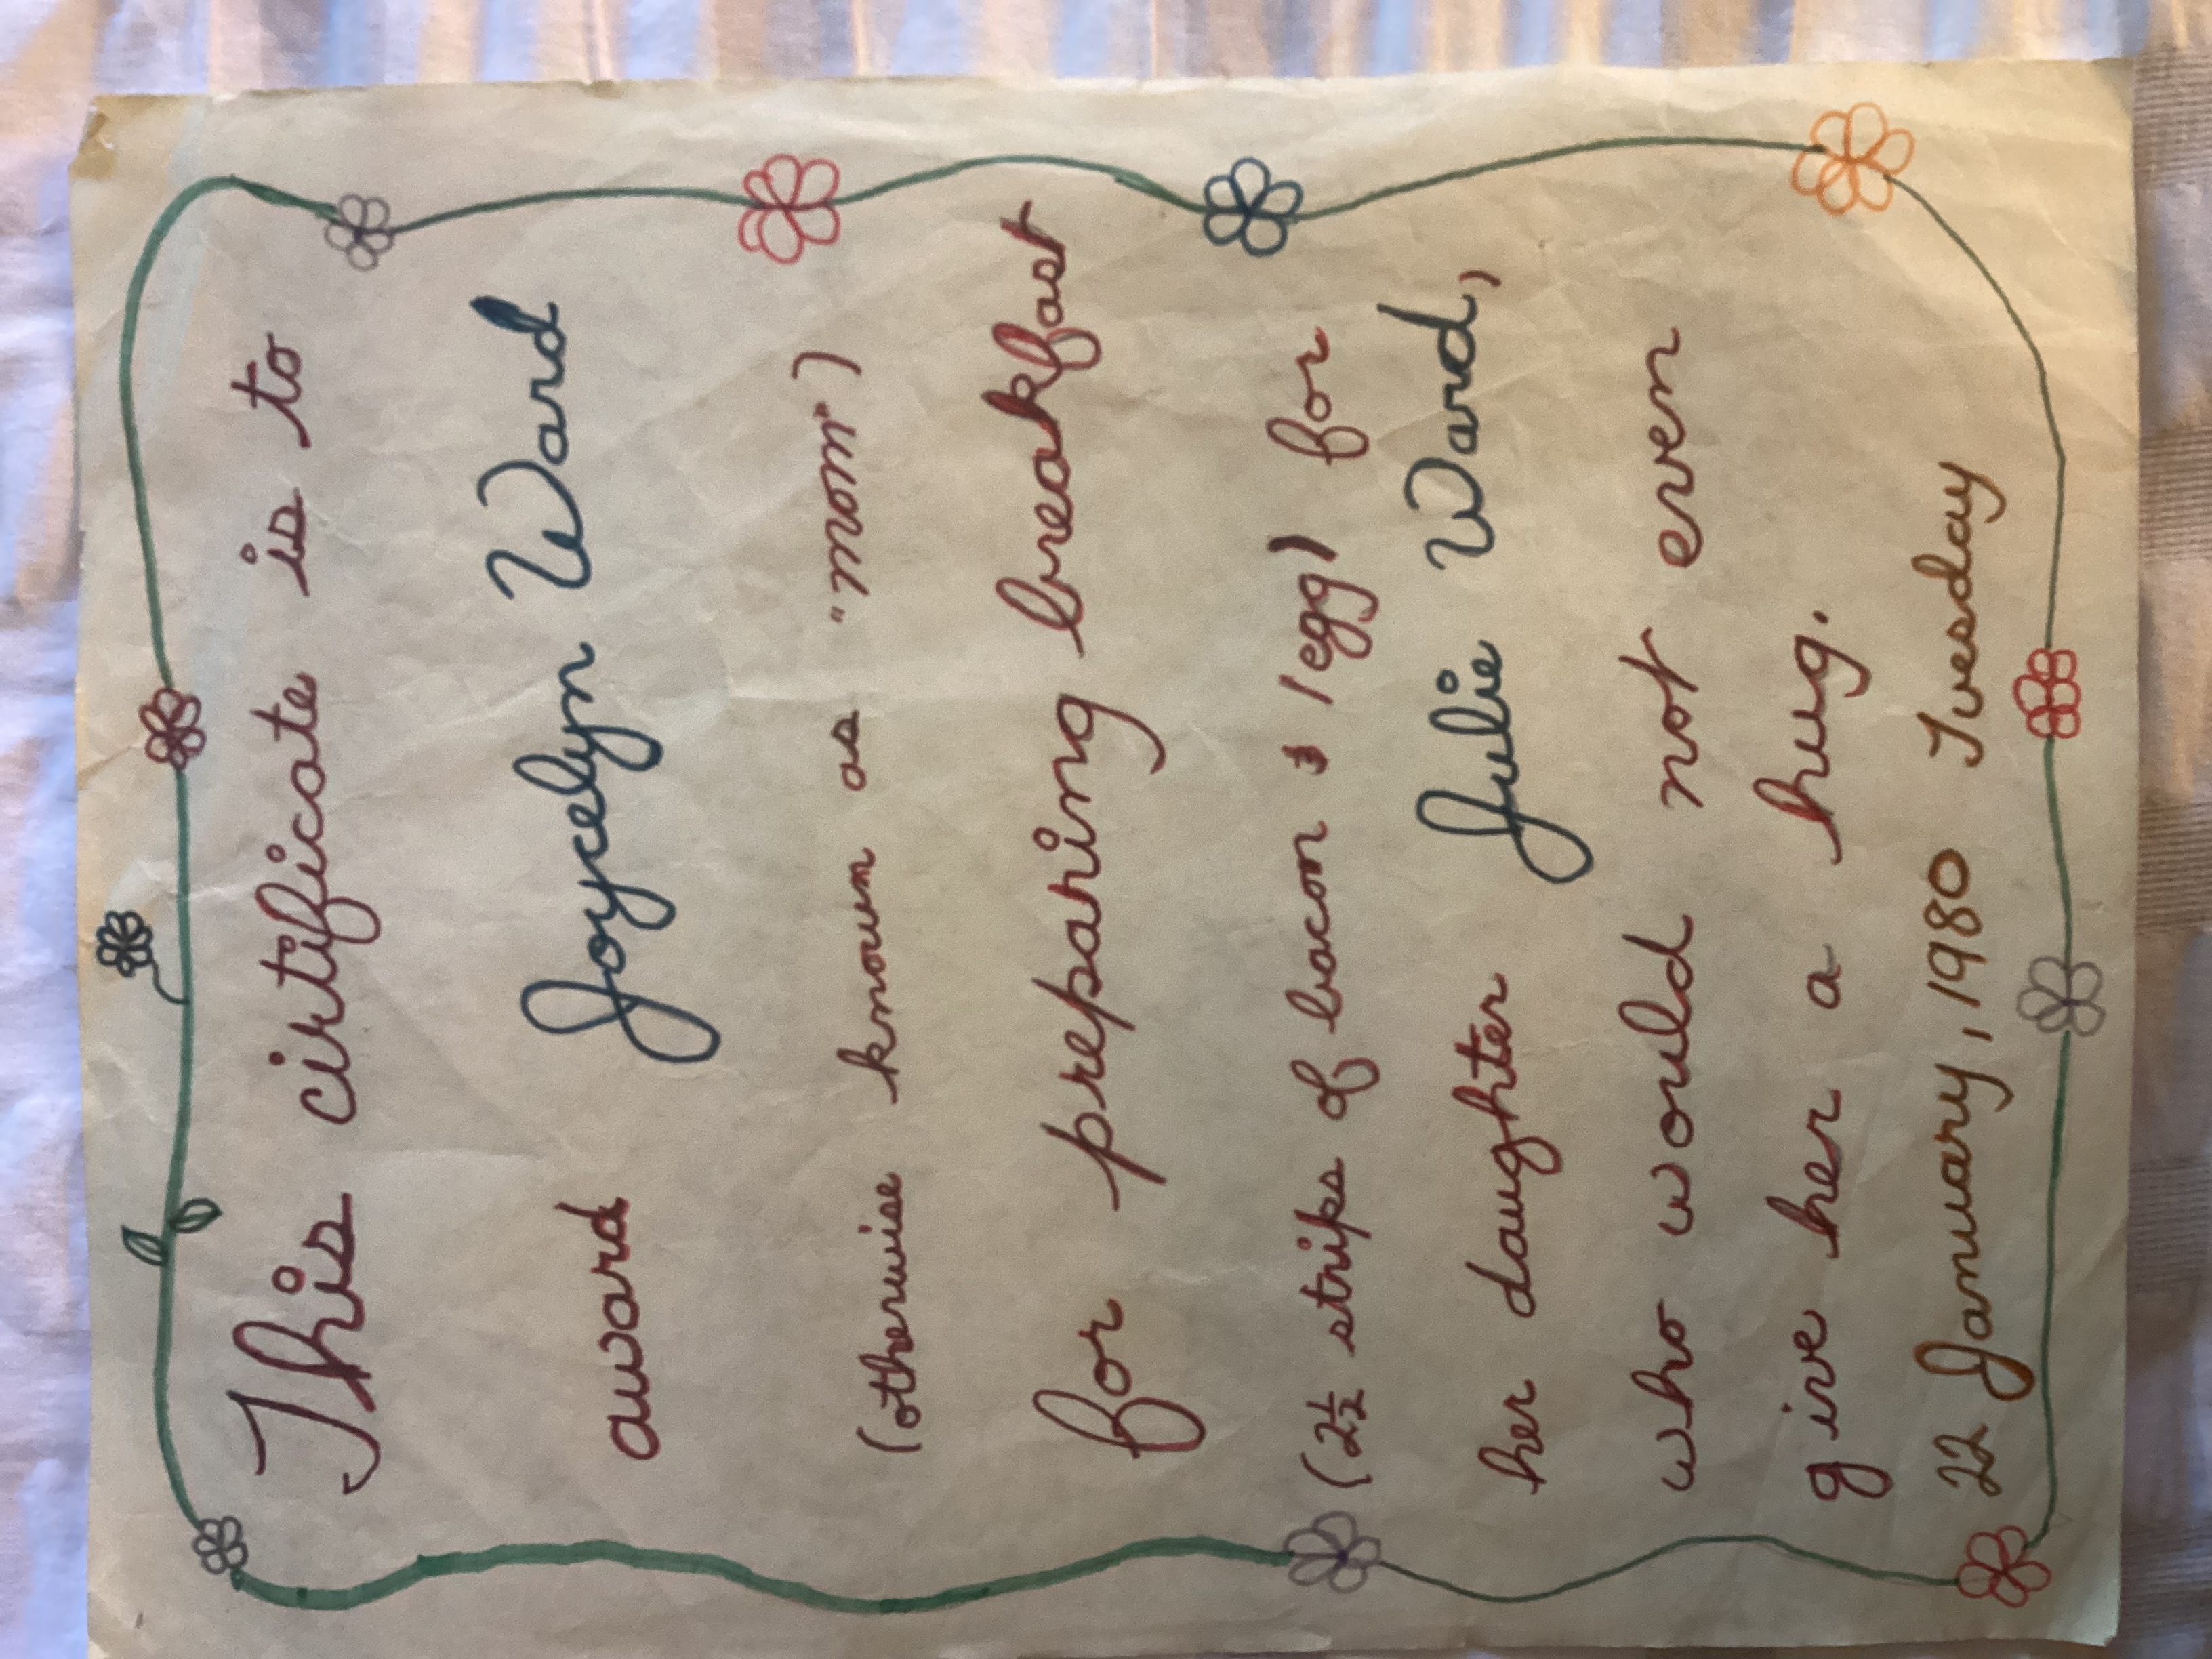 This cirtificate is to
award Joycelyn Ward
(otherwise known as "mom")
for preparing breakfast
(2½ strips of bacon & 1 egg) for
her daughter Julie Ward,
who would not even
give her a hug.
22 January, 1980 Tuesday